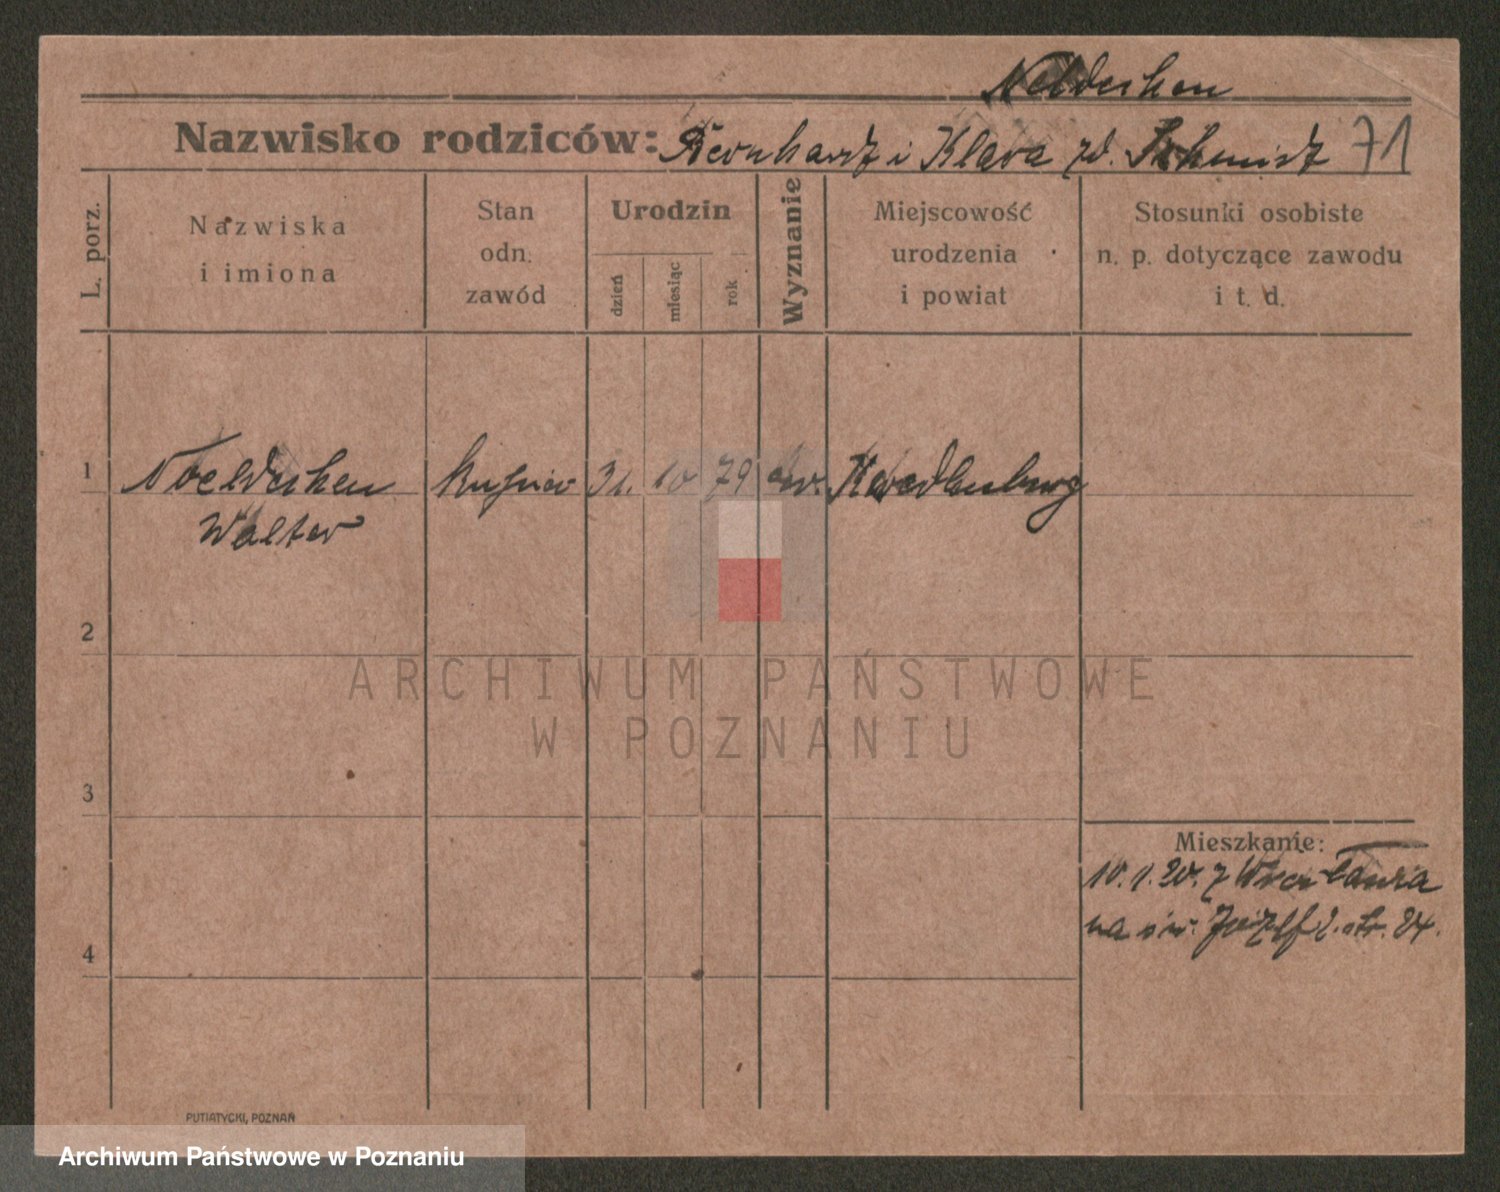 Nelderhen
Nazwisko rodziców: Bernhardt i Klara zd. Schmidt 71
L. porz.
Nazwiska
i imiona
Stan
odn.
zawód
Urodzin
dzień
miesiąc
rok
Wyznanie
Miejscowość
urodzenia
i powiat
Stosunki osobiste
n. p. dotyczące zawodu
i t. d.
1
31. 10 79 ew.
Walter
2
3
4
Mieszkanie:
10.1.20. z Wrocławia
na św. Józefa str. 24.
PUTIATYCKI, POZNAŃ
ARCHIWUM PAŃSTWOWE
W POZNANIU
Archiwum Państwowe w Poznaniu